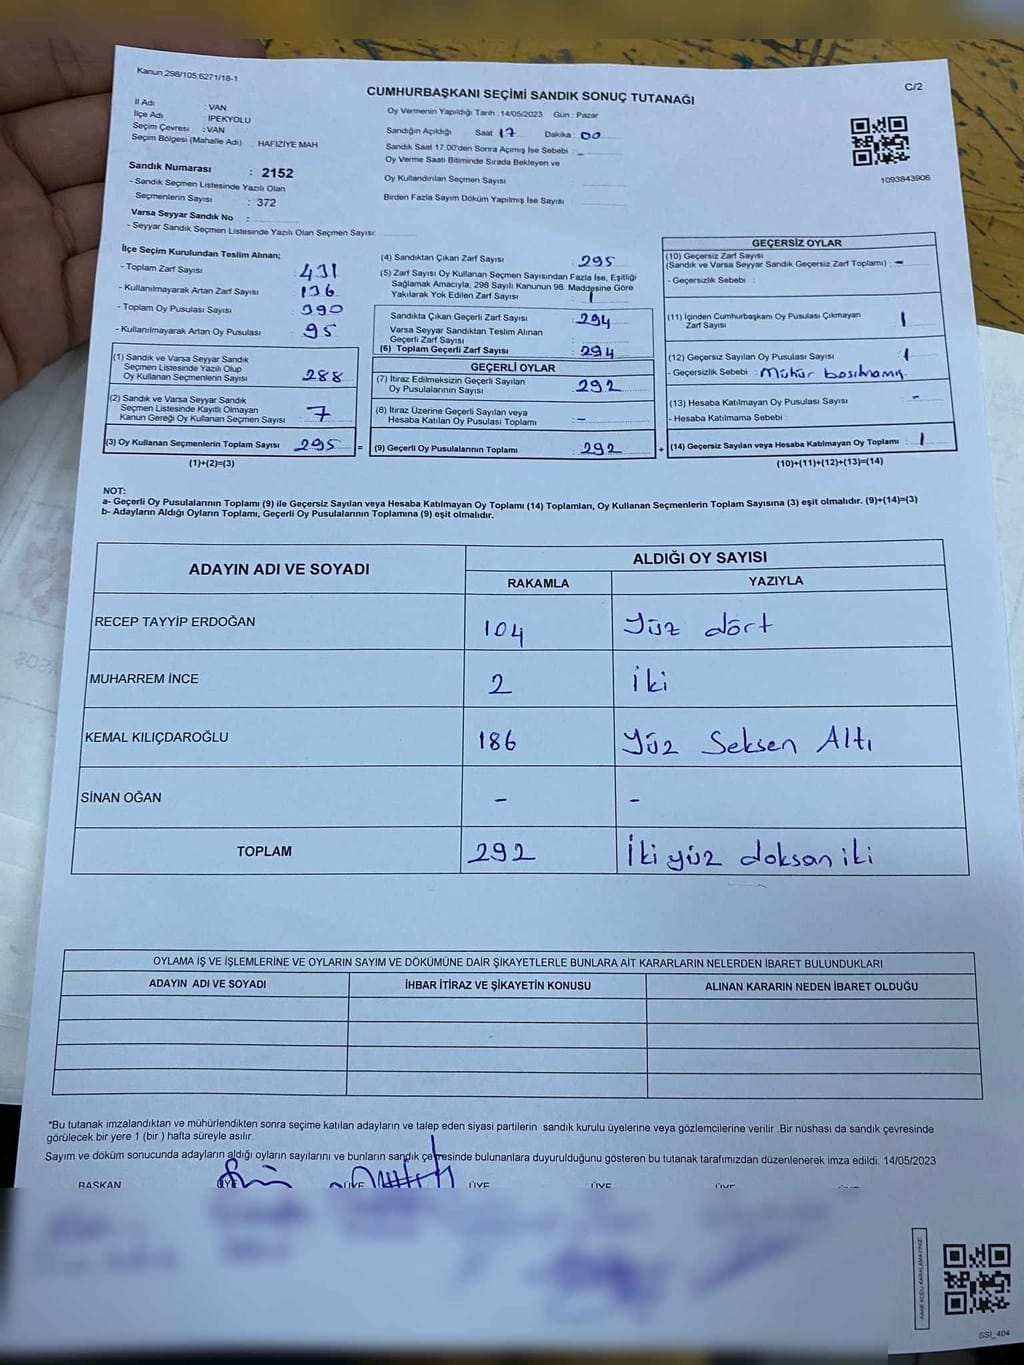 Kanun,298/105,6271/18-1
CUMHURBAŞKANI SEÇİMİ SANDIK SONUÇ TUTANAĞI
C/2
İl Adı : VAN
İlçe Adı : İPEKYOLU
Seçim Çevresi : VAN
Seçim Bölgesi (Mahalle Adı) HAFIZİYE MAH.
Oy Vermenin Yapıldığı Tarih : 14/05/2023 Gün : Pazar
Sandığın Açıldığı Saat 17 Dakika : 00
Sandık Saat 17:00'den Sonra Açımış İse Sebebi -
Oy Verme Saati Bitiminde Sırada Bekleyen ve
Oy Kullandırılan Seçmen Sayısı
Birden Fazla Sayım Döküm Yapılmış İse Sayısı :
1093843906
Sandık Numarası : 2152
- Sandık Seçmen Listesinde Yazılı Olan
Seçmenlerin Sayısı : 372
Varsa Seyyar Sandık No :
- Seyyar Sandık Seçmen Listesinde Yazılı Olan Seçmen Sayısı:
İlçe Seçim Kurulundan Teslim Alınan;
- Toplam Zarf Sayısı : 431
- Kullanılmayarak Artan Zarf Sayısı : 136
- Toplam Oy Pusulası Sayısı : 390
- Kullanılmayarak Artan Oy Pusulası : 95
(1) Sandık ve Varsa Seyyar Sandık
Seçmen Listesinde Yazılı Olup
Oy Kullanan Seçmenlerin Sayısı : 288
(2) Sandık ve Varsa Seyyar Sandık
Seçmen Listesinde Kayıtlı Olmayan
Kanun Gereği Oy Kullanan Seçmen Sayısı : 7
(3) Oy Kullanan Seçmenlerin Toplam Sayısı : 295 =
(1)+(2)=(3)
(4) Sandıktan Çıkan Zarf Sayısı : 295
(5) Zarf Sayısı Oy Kullanan Seçmen Sayısından Fazla İse, Eşitliği
Sağlamak Amacıyla, 298 Sayılı Kanunun 98. Maddesine Göre
Yakılarak Yok Edilen Zarf Sayısı : 1
Sandıkta Çıkan Geçerli Zarf Sayısı : 294
Varsa Seyyar Sandıktan Teslim Alınan
Geçerli Zarf Sayısı :
(6) Toplam Geçerli Zarf Sayısı : 294
GEÇERLİ OYLAR
(7) İtiraz Edilmeksizin Geçerli Sayılan
Oy Pusulalarının Sayısı : 292
(8) İtiraz Üzerine Geçerli Sayılan veya
Hesaba Katılan Oy Pusulası Toplamı : -
(9) Geçerli Oy Pusulalarının Toplamı : 292 +
GEÇERSİZ OYLAR
(10) Geçersiz Zarf Sayısı
(Sandık ve Varsa Seyyar Sandık Geçersiz Zarf Toplamı) : -
- Geçersizlik Sebebi :
(11) İçinden Cumhurbaşkanı Oy Pusulası Çıkmayan
Zarf Sayısı : 1
(12) Geçersiz Sayılan Oy Pusulası Sayısı : 1
- Geçersizlik Sebebi : Mühür basılmamış.
(13) Hesaba Katılmayan Oy Pusulası Sayısı : -
- Hesaba Katılmama Sebebi :
(14) Geçersiz Sayılan veya Hesaba Katılmayan Oy Toplamı : 1
(10)+(11)+(12)+(13)=(14)
NOT:
a- Geçerli Oy Pusulalarının Toplamı (9) ile Geçersiz Sayılan veya Hesaba Katılmayan Oy Toplamı (14) Toplamları, Oy Kullanan Seçmenlerin Toplam Sayısına (3) eşit olmalıdır. (9)+(14)=(3)
b- Adayların Aldığı Oyların Toplamı, Geçerli Oy Pusulalarının Toplamına (9) eşit olmalıdır.
ADAYIN ADI VE SOYADI
ALDIĞI OY SAYISI
RAKAMLA YAZIYLA
RECEP TAYYİP ERDOĞAN 104 Yüz dört
MUHARREM İNCE 2 İki
KEMAL KILIÇDAROĞLU 186 Yüz Seksen Altı
SİNAN OĞAN - -
TOPLAM 292 İki yüz doksan iki
OYLAMA İŞ VE İŞLEMLERİNE VE OYLARIN SAYIM VE DÖKÜMÜNE DAİR ŞİKAYETLERLE BUNLARA AİT KARARLARIN NELERDEN İBARET BULUNDUKLARI
ADAYIN ADI VE SOYADI İHBAR İTİRAZ VE ŞİKAYETİN KONUSU ALINAN KARARIN NEDEN İBARET OLDUĞU
*Bu tutanak imzalandıktan ve mühürlendikten sonra seçime katılan adayların ve talep eden siyasi partilerin sandık kurulu üyelerine veya gözlemcilerine verilir .Bir nüshası da sandık çevresinde
görülecek bir yere 1 (bir ) hafta süreyle asılır.
Sayım ve döküm sonucunda adayların aldığı oyların sayılarını ve bunların sandık çevresinde bulunanlara duyurulduğunu gösteren bu tutanak tarafımızdan düzenlenerek imza edildi. 14/05/2023
BAŞKAN ÜYE ÜYE ÜYE ÜYE ÜYE
SSI_404